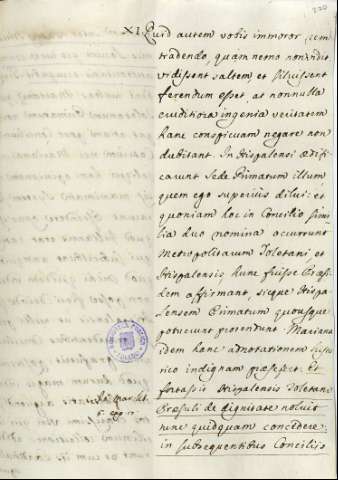 220
XI. Quid autem vobis immoror rem
tradendo, quam nemo non vidit
vidissent saltem et siluissent
ferendum esset, at nonnulla
eruditiora ingenia veritatem
hanc conspicuam negare non
dubitant. In Hispalensi ædifi-
carunt Sede Primatum illum
quem ego superiùs dilui: et
quoniam hoc in Concilio simi-
lia duo nomina occurrunt
Metropolitarum Toletani, et
Hispalensis hunc fuisse Præsu-
lem affirmant, sicque Hispa-
lensem Primatum quousque
potuerunt protendunt. Mariana
idem hanc adnotationem histo-
rico indignam præsepit. Et
fortassis Hispalensis Toletano
Præsuli de dignitate noluit
tunc quidquam concedere:
in subsequentibus Conciliis
Mar. lib.
6. cap.